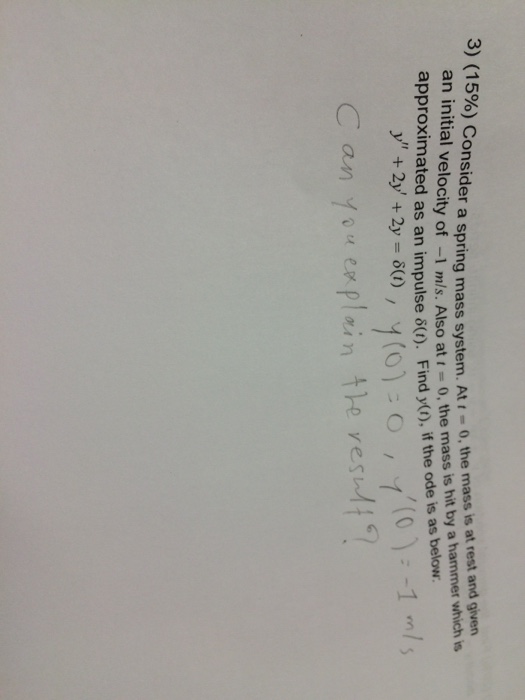 3) (15%) Consider a spring mass system. At t = 0, the mass is at rest and given
an initial velocity of −1 m/s. Also at t = 0, the mass is hit by a hammer which is
approximated as an impulse δ(t). Find y(t), if the ode is as below:
y" + 2y' + 2y = δ(t) , y(0) = 0 , y'(0) = -1 m/s
Can you explain the result?